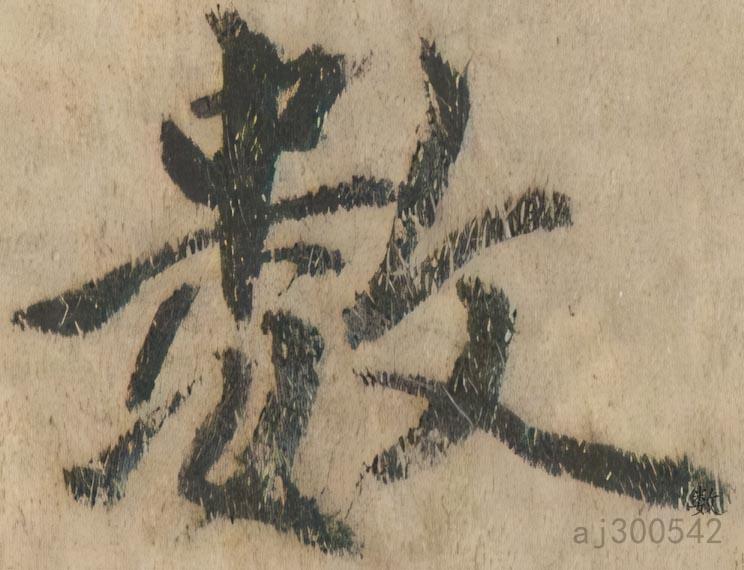 數
数
aj300542